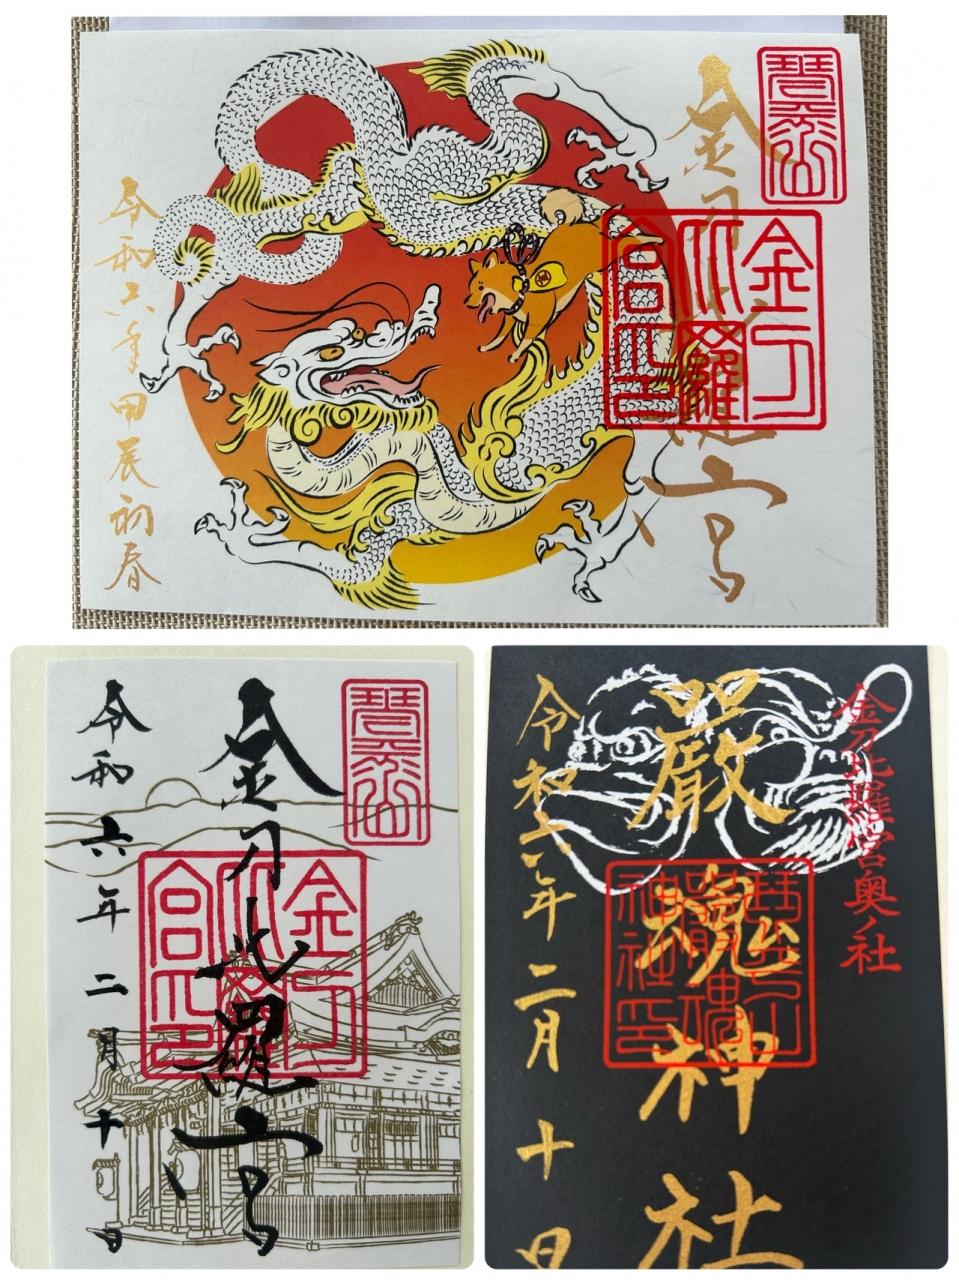 琴平山
金刀比羅宮
金刀
比羅
宮印
令和六年甲辰初春
琴平山
金刀比羅宮
金刀
比羅
宮印
令和六年二月十日
金刀比羅宮奥ノ社
嚴魂神社
琴平山
嚴魂
神社印
令和六年二月十日